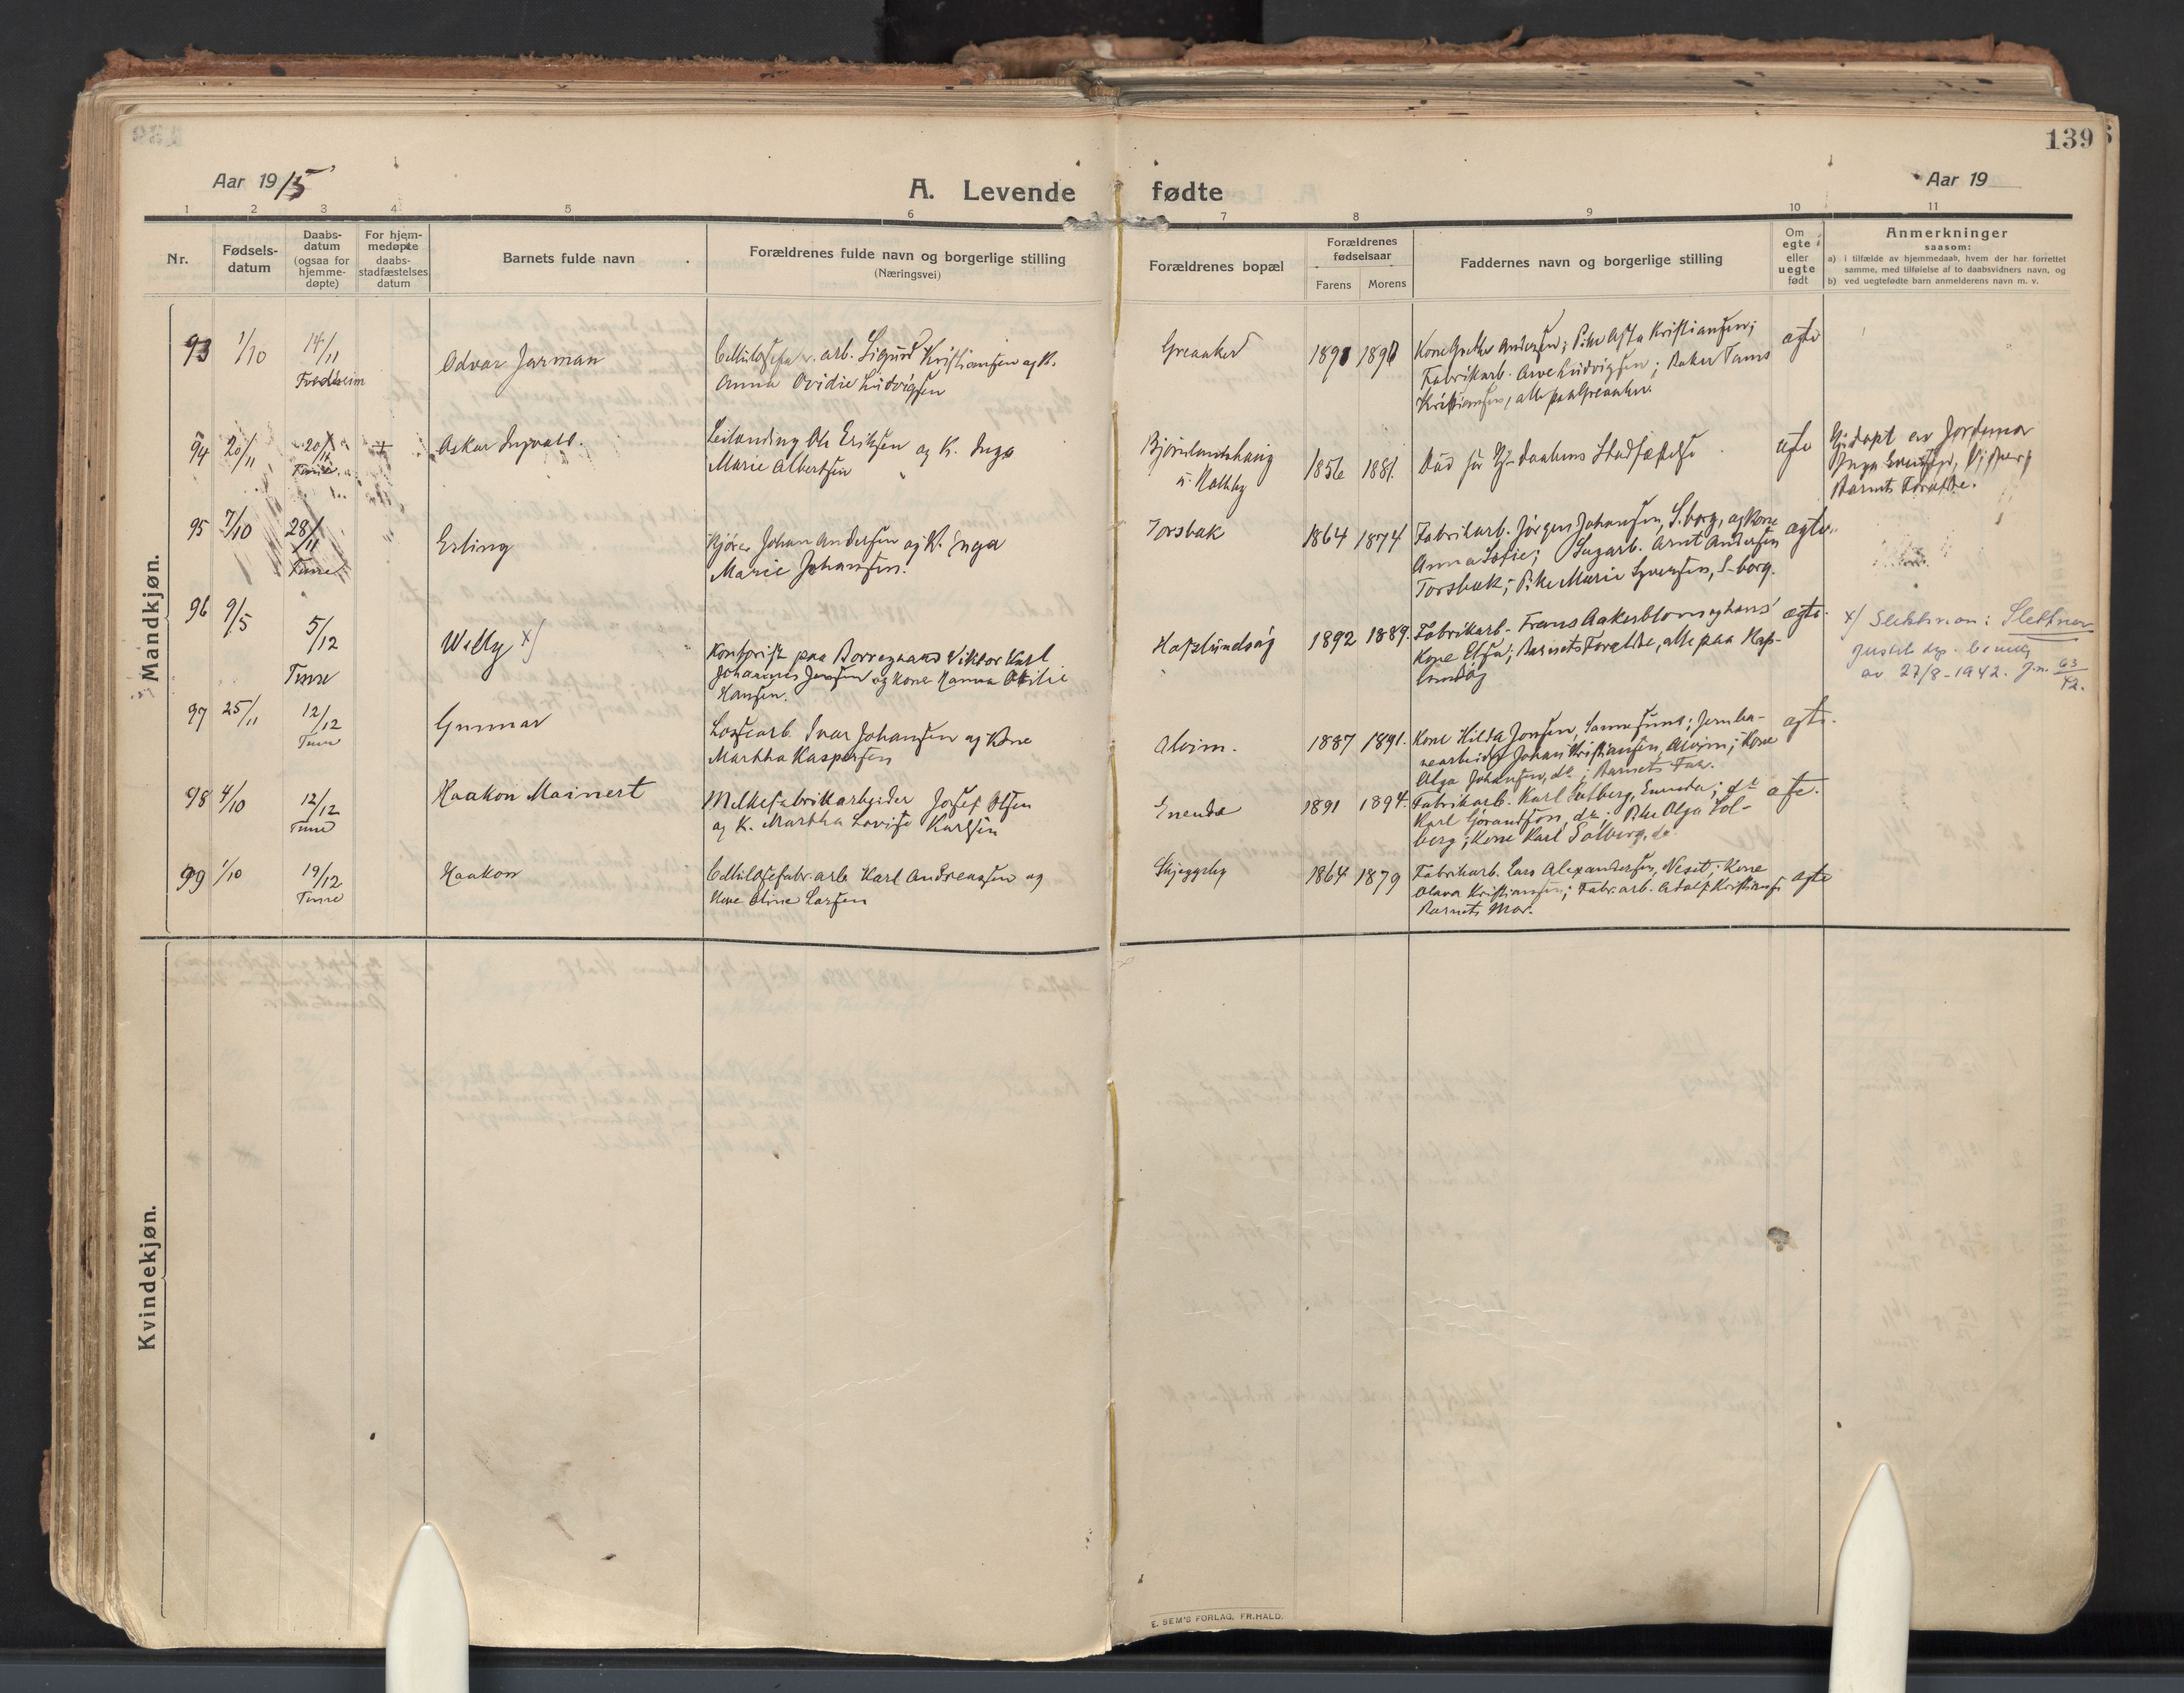 139
Aar 1915
A. Levende fødte
Aar 19
1 2 3 4 5 6 7 8 9 10 11
Nr.
Fødsels-
datum
Daabs-
datum
(ogsaa for
hjemme-
døpte)
For hjem-
medøpte
daabs-
stadfæstelses
datum
Barnets fulde navn
Forældrenes fulde navn og borgerlige stilling
(Næringsvei)
Forældrenes bopæl
Forældrenes
fødselsaar
Farens Morens
Faddernes navn og borgerlige stilling
Om
egte
eller
uegte
født
Anmerkninger
saasom:
a) i tilfælde av hjemmedaab, hvem der har forrettet
samme, med tilføielse af to daabsvidners navn, og
b) ved uegtefødte barn anmelderens navn m. v.
Mandkjøn.
93 1/10 14/11
Fredheim
Odvar Jarman
arb. Sigurd Kristiansen og K.
Anna Ovidie Ludvigsen
Greaaker
1891 1890
Kone Grethe Andersen; Pike Asta Kristiansen;
Fabrikarb. Arve Ludvigsen; Baker Tams
Kristiansen, alle paa Greaaker.
egte
94 20/11 20/11 +
Tune
Oskar Ingvald.
Ole Eriksen og K. Inga
Marie Albertsen
Bjørnlandshaug
u. Kalkby
1856 1881.
Død før Hj. daabens Stadfæstelse
egte
Hjdøpt av Jordmor
Barnets Forældre.
95 7/10 28/11
Tune
Erling
Kjører Johan Andersen og K. Inga
Marie Johansen.
Torsbak
1864 1874
Fabrikarb. Jørgen Johansen, S.borg, og Kone
Anna Sofie; Sagarb. Arnt Andersen
Torsbak; Pike Marie Syversen, S-borg.
egte.
96 9/5 5/12
Tune
Willy x)
Kontorist paa Borregaard Viktor Karl
Johannes Jensen og Kone Hanna Otilie
Hansen.
Hafslundsøy
1892 1889.
Fabrikarb. Frans Aakerblom og hans
Kone Elsa; Barnets Forældre, alle paa Haf-
lundøy
egte.
x) Slektsnavn: Slettner
Justisdep. bevilg
av 27/8-1942. J.n. 63/42.
97 25/11 12/12
Tune
Gunnar
Lossearb. Ivar Johansen og Kone
Martha Kaspersen
Alvim.
1887 1891.
Kone Hilda Jonsen, Sannesund; Jernba-
nearbeider Johan Kristiansen, Alvim; Kone
Olga Johansen, do; Barnets Far.
egte.
98 4/10 12/12
Tune
Haakon Mainert
Melkefabrikkarbeider Josef Olsen
og K. Martha Lovise Karlsen
Enenda
1891 1894.
Fabrikarb. Karl Solberg, Enenda; do
Karl Gørandson, do; Pike Olga Sol-
berg; Kone Karl Solberg, do.
egte.
99 1/10 19/12
Tune
Haakon
Cellulosefabr. arb. Karl Andreassen og
Kone Oline Larsen
Skjeggeby
1864 1879
Fabrikarb. Lars Alexandersen, Vesit; Kone
Olava Kristiansen; Fabr. arb. Adolf Kristiansen
Barnets Mor.
egte
Kvindekjøn.
E. SEM'S FORLAG, FR.HALD.